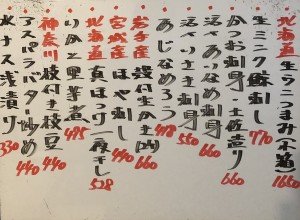 北海道 生うにつまみ 1650
生ミンク鯨刺し 770
かつお刺身・土佐造り 660
活〆あいなめ刺身 660
活〆いさき刺身 550
あじなめろう
岩手産 殻付生がき 660
宮城産 ほや刺し 440
北海道 真ほっけ一夜干し 528
いかと里芋煮 495
神奈川 枝付き枝豆 440
アスパラバター炒め 440
水ナス浅漬け 330